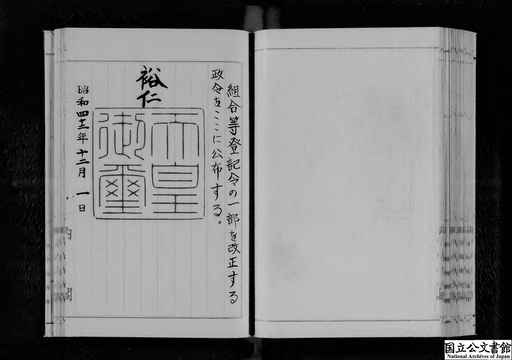 組合等登記令の一部を改正する
政令をここに公布する。
裕仁
天皇
御璽
昭和四十三年十二月一日
内閣
国立公文書館
National Archives of Japan